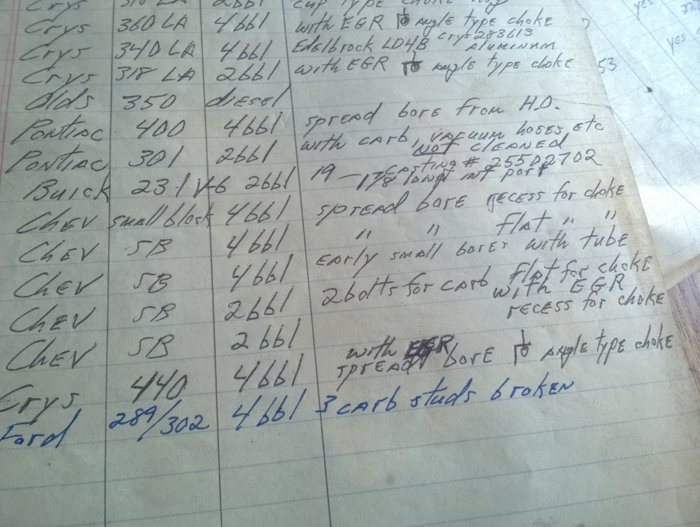 Crys 318 LA 2bbl cup type choke
Crys 360 LA 4bbl with EGR angle type choke
Crys 340 LA 4bbl Edelbrock LD4B Crys 283613 Aluminum
Crys 318 LA 2bbl with EGR angle type choke 53
Olds 350 diesel
Pontiac 400 4bbl spread bore from H.O.
Pontiac 301 2bbl with carb, vacuum hoses, etc
NOT CLEANED
Buick 231 V-6 2bbl casting # 25502702
19 - 1 3/8 long int port
Chev small block 4bbl spread bore recess for choke
Chev SB 4bbl " " flat " "
Chev SB 4bbl early small bores with tube
Chev SB 2bbl 2 bolts for carb flat for choke
Chev SB 2bbl with EGR
recess for choke
Crys 440 4bbl with EGR
spread bore angle type choke
Ford 289/302 4bbl 3 carb studs broken
yes
yes